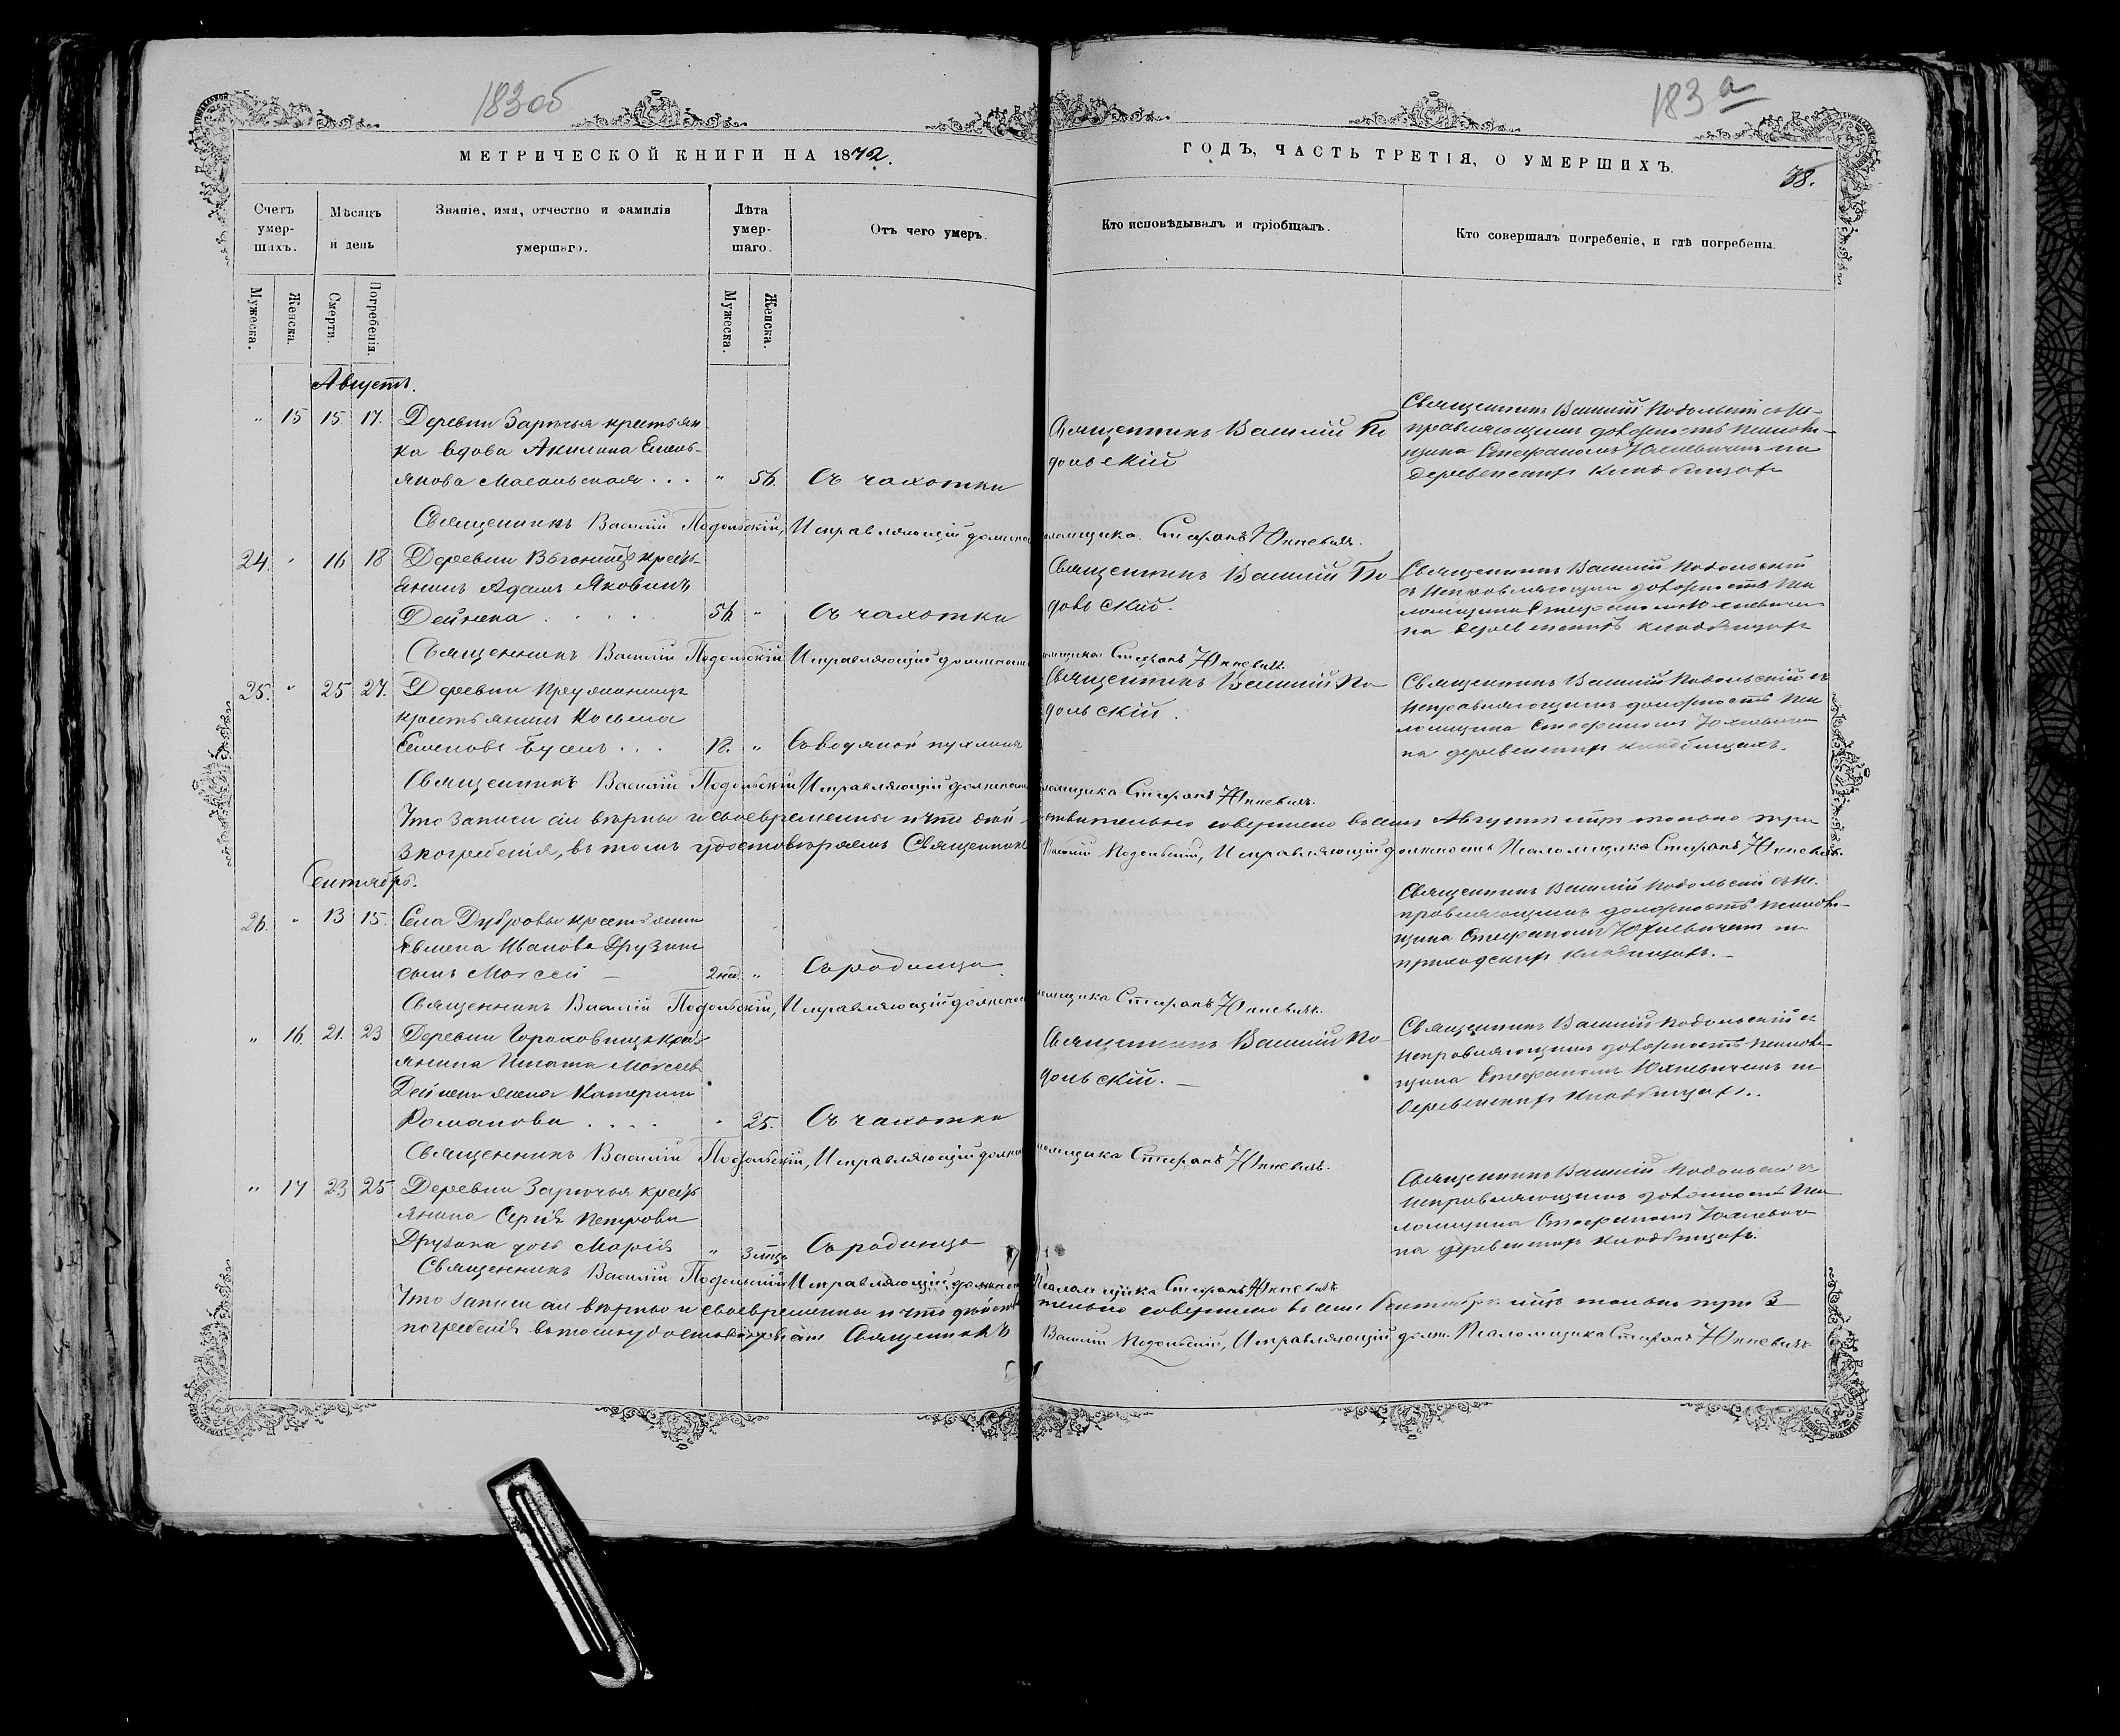 183об
183а
МЕТРИЧЕСКОЙ КНИГИ НА 1872.
ГОДЪ, ЧАСТЬ ТРЕТІЯ, О УМЕРШИХЪ.
38.
Счетъ умер-шихъ.
Мѣсяцъ и день
Званіе, имя, отчество и фамилія умершаго.
Лѣта умер-шаго.
Отъ чего умеръ.
Кто исповѣдывалъ и пріобщалъ.
Кто совершалъ погребеніе, и гдѣ погребены.
Мужеска.
Женска.
Смерти.
Погребенія.
Мужеска.
Женска.
Августъ.
" 15 15 17. Деревни Заречья крестьян
ка вдова Акилина Емель-
янова " 56. Съ чахотки
Священникъ Василій По
дольскій
Священникъ Василій Подольскій съ и-
правляющимъ должность псалом-
щика Стефаномъ Юхневичемъ на
деревенскихъ кладбищахъ
Священникъ Василій Подольскій, Исправляющій должность псаломщика Стефанъ Юхневичъ.
24. " 16 18 Деревни крест-
янинъ Адамъ Яковлевъ
Дейнека 56 " Съ чахотки
Священникъ Василій По-
дольскій.
Священникъ Василій Подольскій
съ исправляющимъ должность пса
ломщика Стефаномъ Юхневичемъ
на деревенскихъ кладбищахъ
Священникъ Василій Подольскій Исправляющій должность псаломщика Стефанъ Юхневичъ.
25. " 25 27. Деревни
крестьянинъ Косьма
Семеновъ 18. " Съ водяной пухлины
Священникъ Василій По-
дольскій.
Священникъ Василій Подольскій съ
исправляющимъ должность пса
ломщика Стефаномъ Юхневичемъ
на деревенскихъ кладбищахъ.
Священникъ Василій Подольскій Исправляющій должность псаломщика Стефанъ Юхневичъ.
Что записи сіи вѣрны и своевременны и что дѣйствительно совершено въ семъ Августѣ м-цѣ только три
3 погребенія, въ томъ удостовѣряемъ Священникъ Василій Подольскій, Исправляющій должность Псаломщика Стефанъ Юхневичъ.
Сентябрь.
26. " 13 15. Села Дубровы крестьянина
Ивана
сынъ Моисей — 2 нед. " Съ родимца
Священникъ Василій Подольскій съ и-
правляющимъ должность псалом-
щика Стефаномъ Юхневичемъ на
приходскихъ кладбищахъ. —
Священникъ Василій Подольскій, Исправляющій должность псаломщика Стефанъ Юхневичъ.
" 16. 21. 23 Деревни крест-
янина Игната
жена Катерина
Романова " 25. Съ чахотки
Священникъ Василій По-
дольскій. —
Священникъ Василій Подольскій съ
исправляющимъ должность псалом-
щика Стефаномъ Юхневичемъ на
деревенскихъ кладбищахъ.
Священникъ Василій Подольскій, Исправляющій должность псаломщика Стефанъ Юхневичъ.
" 17 23 25 Деревни Заречья крест-
янина Сергія Петрова
дочь Марія " 3 мѣс. Съ родимца
Священникъ Василій Подольскій съ
исправляющимъ должность пса
ломщика Стефаномъ
на деревенскихъ кладбищахъ.
Священникъ Василій Подольскій Исправляющій должность Псаломщика Стефанъ Юхневичъ
Что записи сіи вѣрны и своевременны и что дѣйствительно совершено въ семъ Сентябрѣ м-цѣ только три 3
погребенія въ томъ удостовѣряемъ Священникъ Василій Подольскій, Исправляющій долж. Псаломщика Стефанъ Юхневичъ